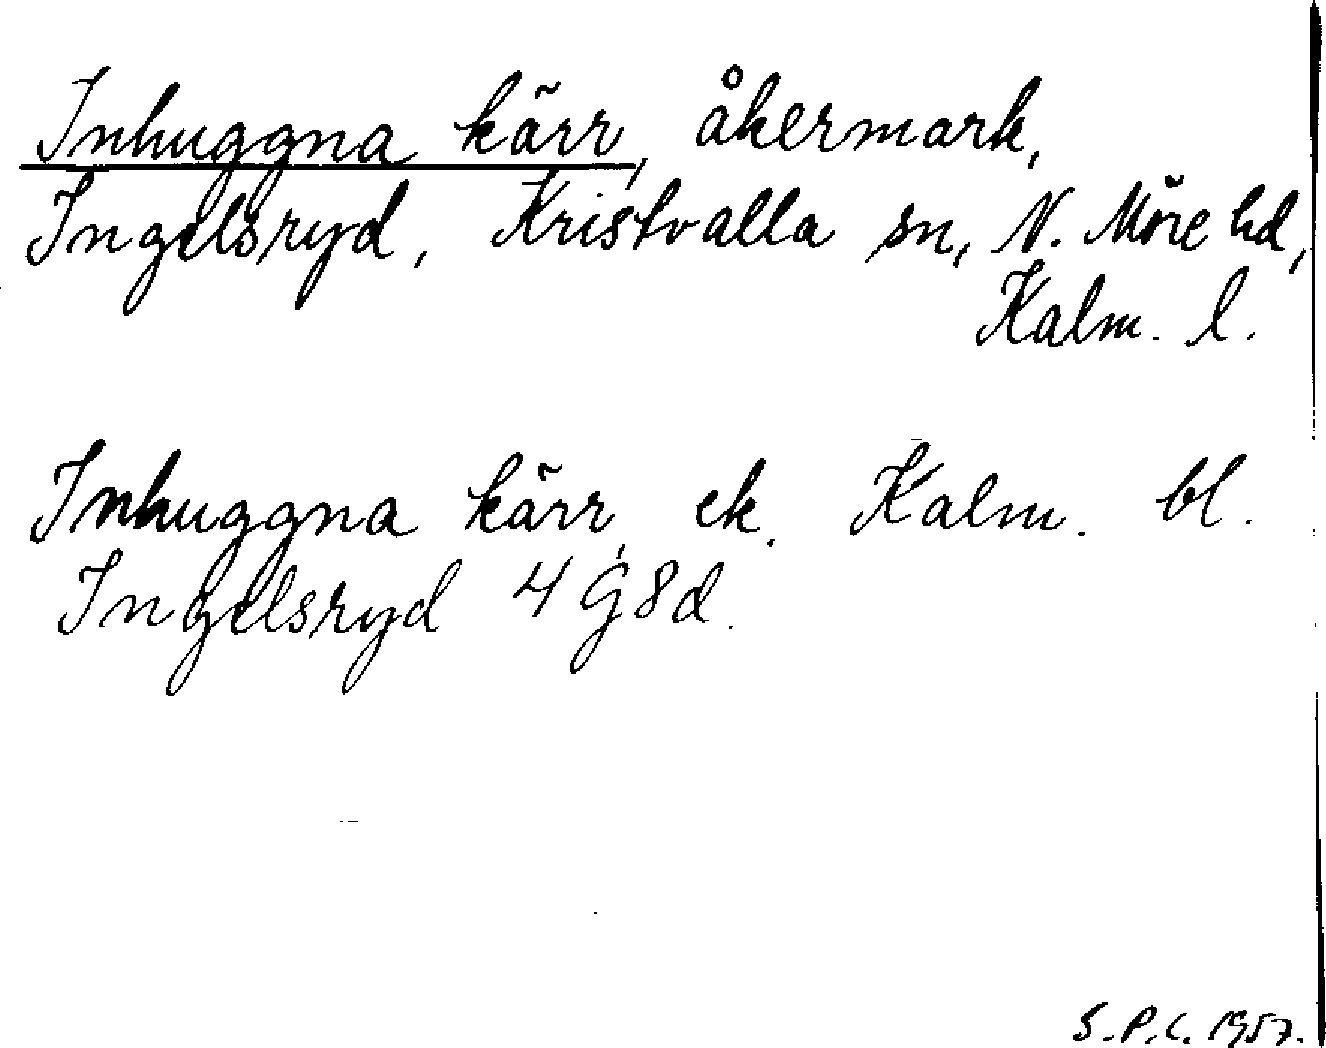 Inhuggna kärr, åkermark,
Ingelsryd, Kristvalla sn, N. Möre hd,
Kalm. l.
Inhuggna kärr, ek. Kalm. bl.
Ingelsryd 4 G 8 d.
S.P.C. 1957.